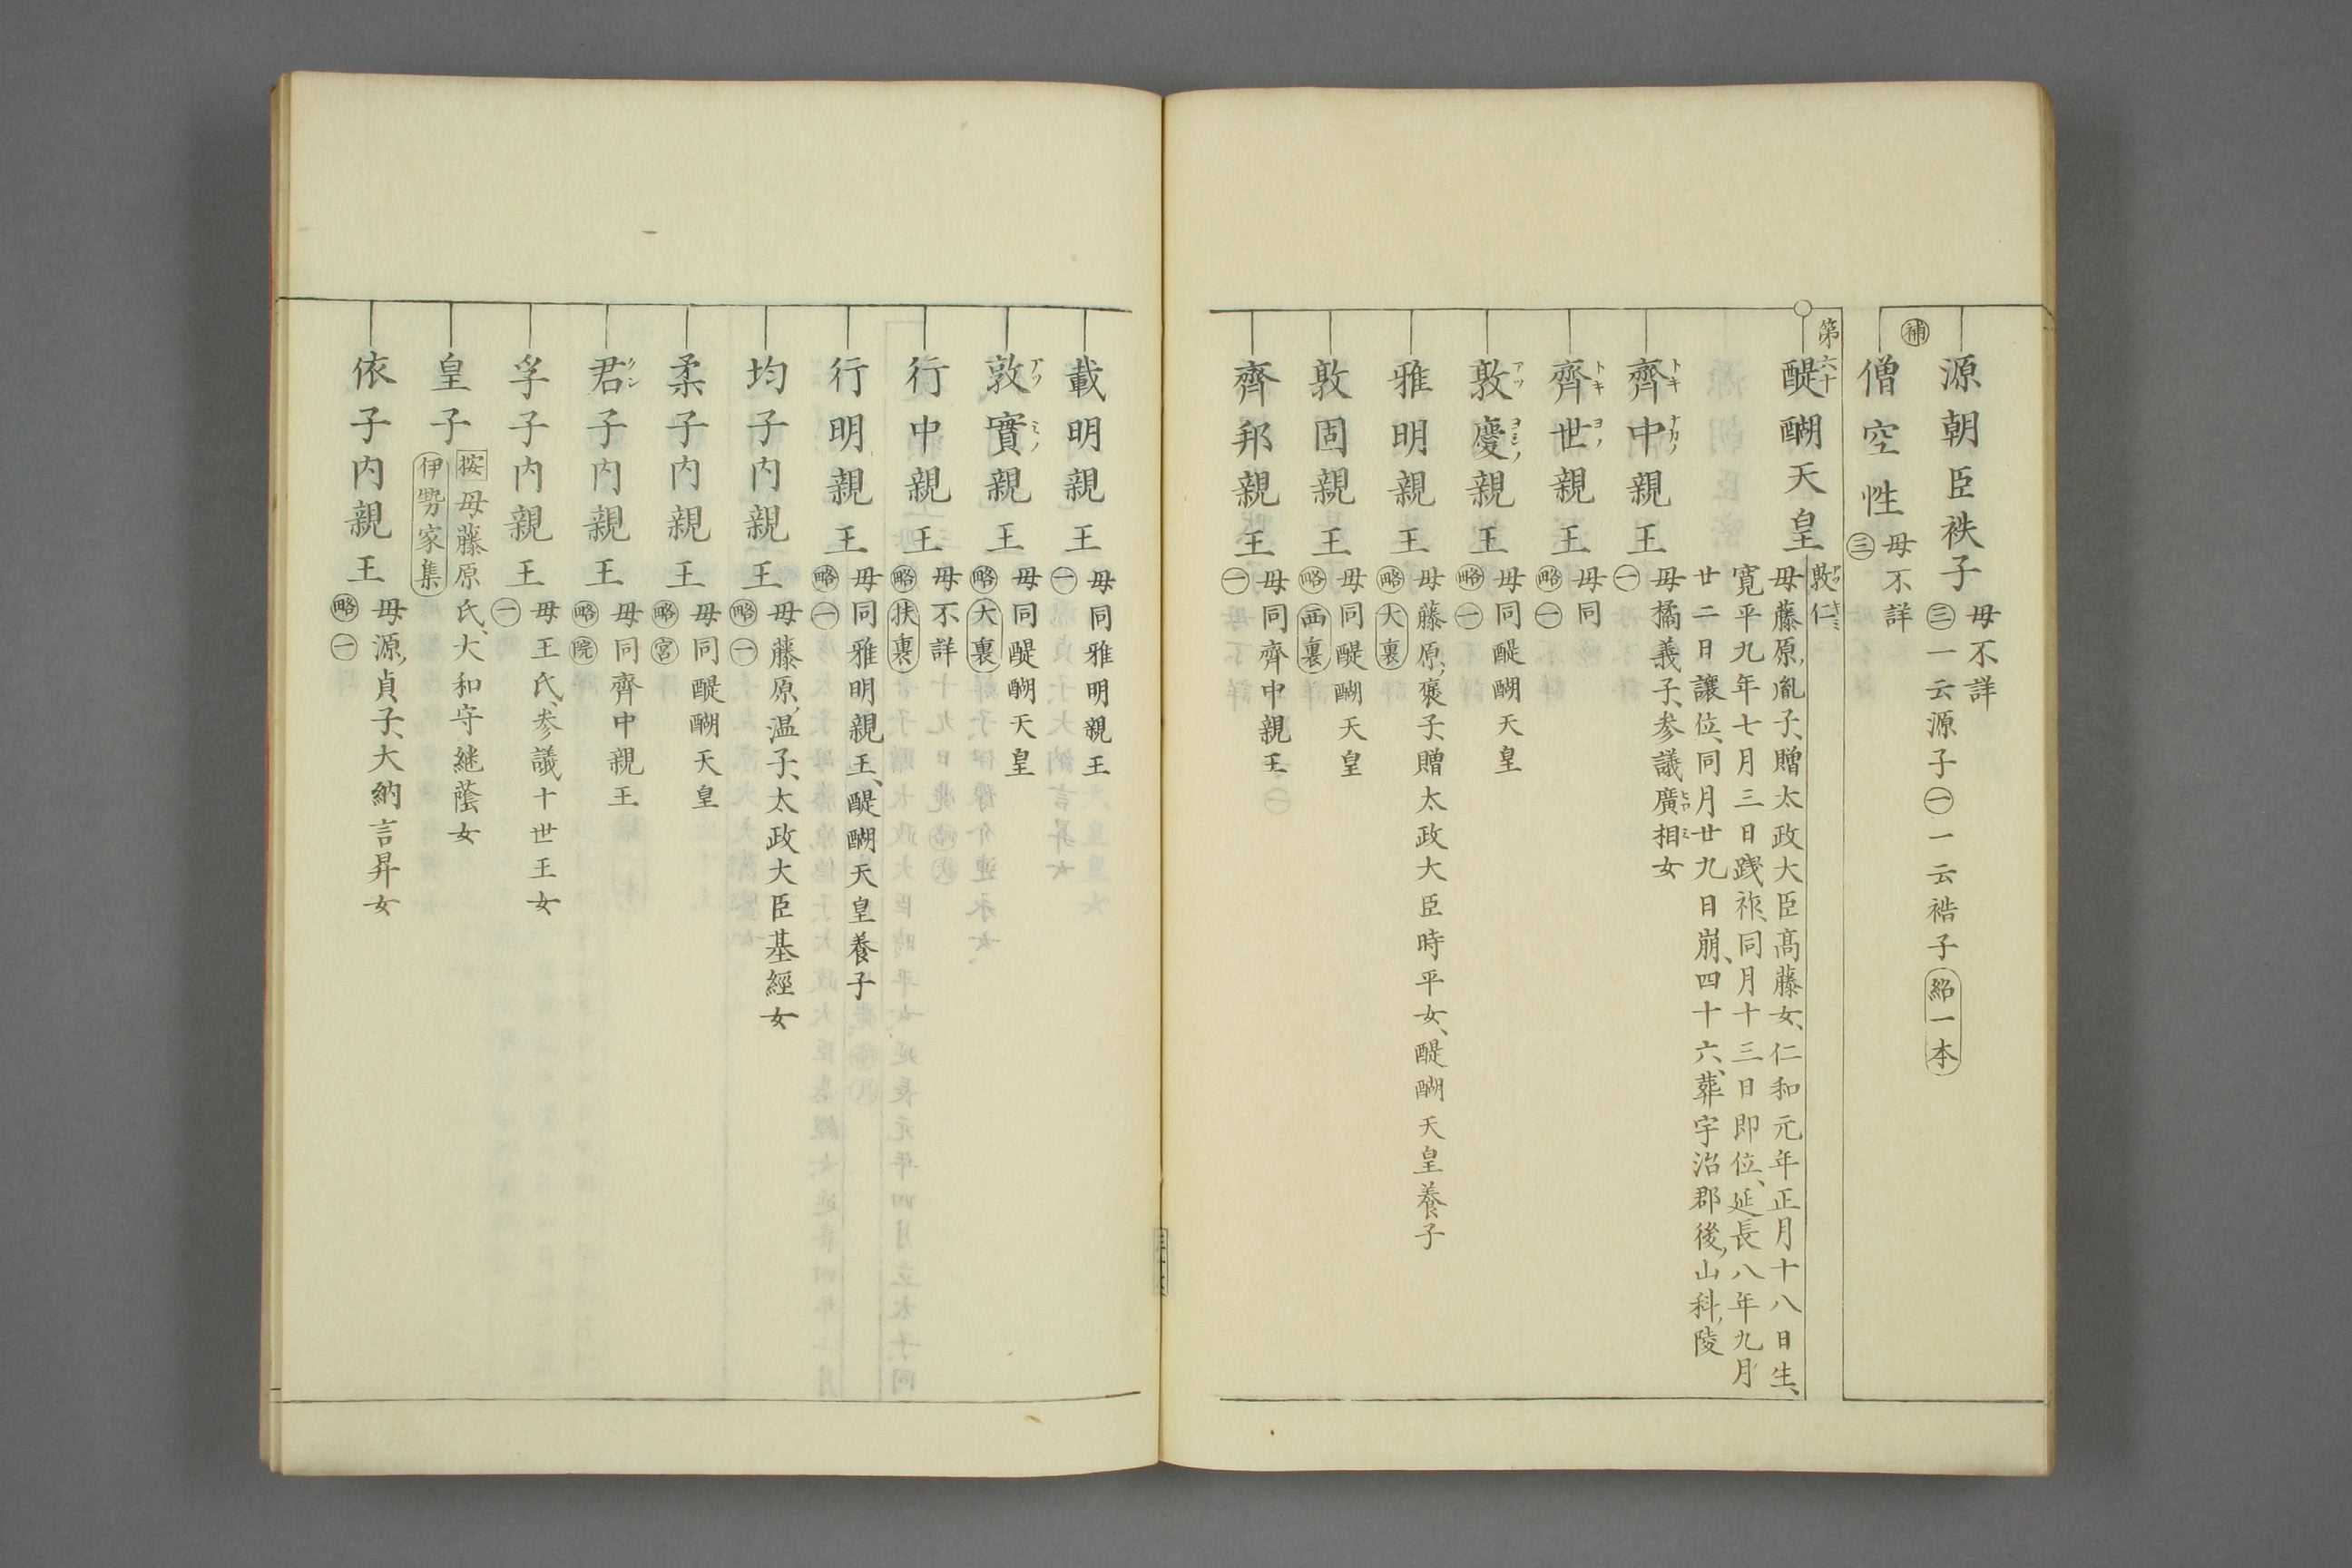 源朝臣袟子
母不詳
㊂一云源子㊀一云祰子紹一本
補
僧空性
母不詳
㊂
第六十
醍醐天皇
敦仁
母藤原胤子、贈太政大臣高藤女、仁和元年正月十八日生、
寛平九年七月三日践祚、同月十三日即位、延長八年九月
廿二日讓位、同月廿九日崩、四十六、葬宇治郡後山科陵
齊中親王
トキナカノ
母橘義子、参議廣相女
ヒロミ
㊀
齊世親王
トキヨノ
母同
略㊀
敦慶親王
アツヨシノ
母同醍醐天皇
略㊀
雅明親王
母藤原褒子、贈太政大臣時平女、醍醐天皇養子
略大裏
敦固親王
母同醍醐天皇
略西裏
齊邦親王
母同齊中親王
㊀
載明親王
母同雅明親王
㊀
敦實親王
アツミノ
母同醍醐天皇
略大裏
行中親王
母不詳
略扶裏
行明親王
母同雅明親王、醍醐天皇養子
略㊀
均子内親王
母藤原温子、太政大臣基經女
略㊀
柔子内親王
母同醍醐天皇
略宮
君子内親王
クン
母同齊中親王
略院
孚子内親王
母王氏、参議十世王女
㊀
皇子
按母藤原氏、大和守継蔭女
伊勢家集
依子内親王
母源貞子、大納言昇女
略㊀